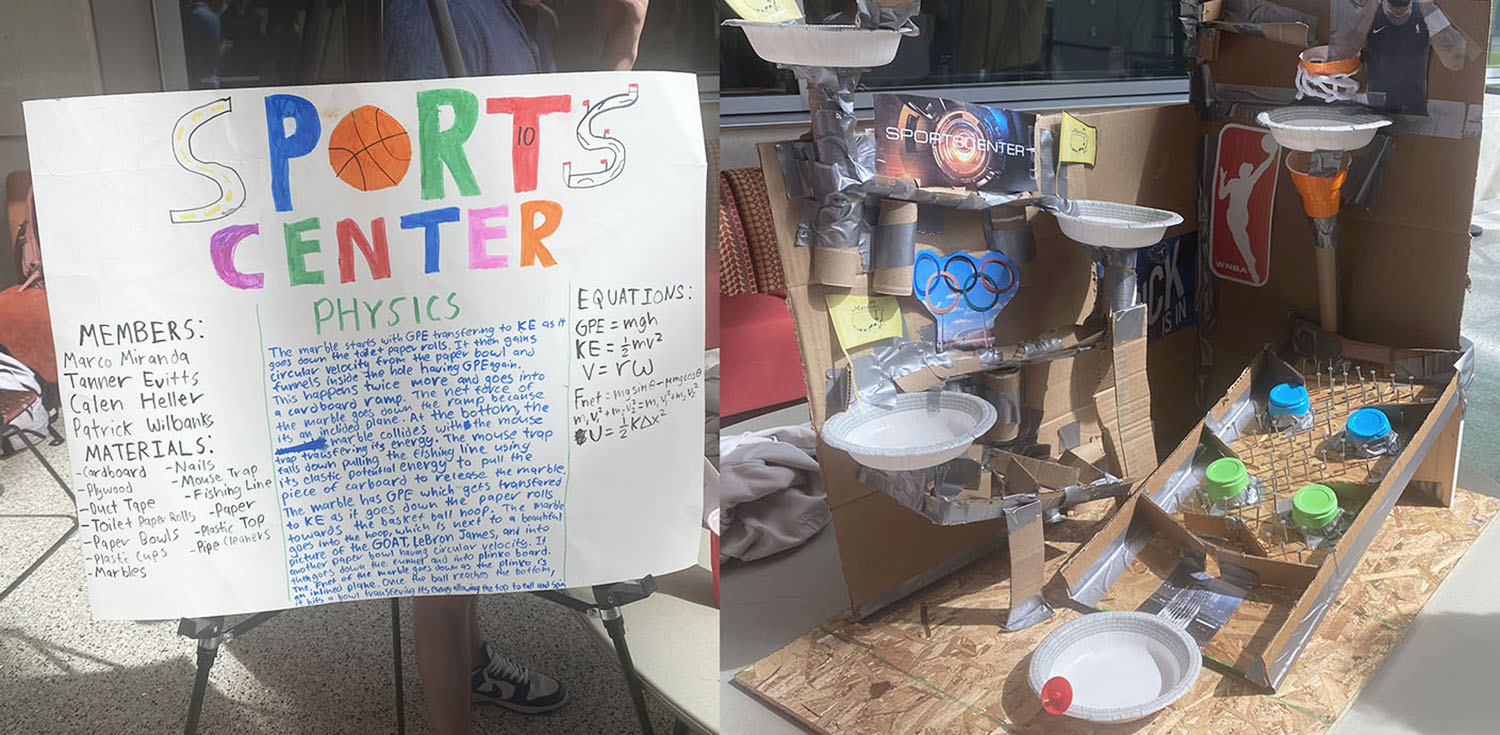 SPORTS
10
CENTER
PHYSICS
MEMBERS:
Marco Miranda
Tanner Evitts
Calen Heller
Patrick Wilbanks
MATERIALS:
-Cardboard
-Plywood
-Duct Tape
-Toilet Paper Rolls
-Paper Bowls
-Plastic Cups
-Marbles
-Nails
-Mouse Trap
-Fishing Line
-Paper
-Plastic Top
-Pipe Cleaners
The marble starts with GPE transfering to KE as it
goes down the toilet paper rolls. It then gains
circular velocity from the paper bowl and
funnels inside the hole having GPE again.
This happens twice more and goes into
a cardboard ramp. The net force of
the marble goes down the ramp because
its an inclided plane. At the bottom, the
marble collides with the mouse
trap transfering its energy. The mouse trap
falls down pulling the fishing line using
its elastic potential energy to pull the
piece of carboard to release the marble.
The marble has GPE which gets transfered
to KE as it goes down the paper rolls
towards the basket ball hoop. The marble
goes into the hoop, which is next to a beautiful
picture of the GOAT, LeBron James, and into
another paper bowl having circular velocity. It
then goes down the funnel and into plinko board.
The Fnet of the marble goes down as the plinko is
an inlined plane. Once the ball reaches the bottom,
it hits a bowl transfering its energy allowing the top to fall and spin
EQUATIONS:
GPE = mgh
KE = ½mv²
V = rω
Fnet = mg sin θ - μmg cos θ
m₁v₁² + m₂v₂² = m₁v₁² + m₂v₂²
U = ½KΔx²
SPORTSCENTER
WNBA
CK
IS IN